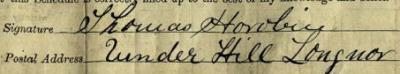 this Schedule is correctly filled up to the best of my knowledge and belief.
Signature Thomas Horobin
Postal Address Under Hill Longnor